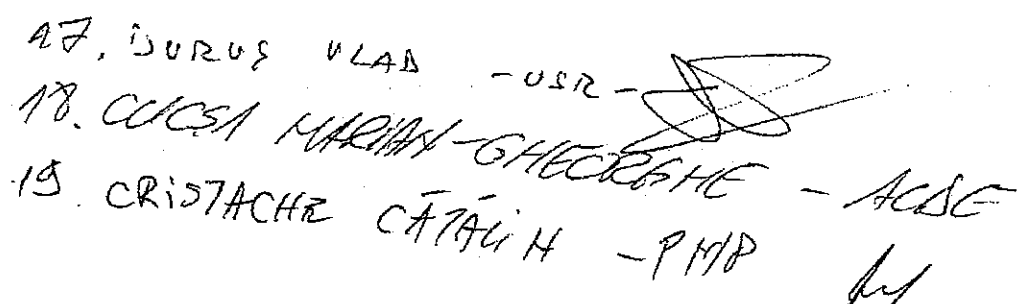 17. DURUȘ VLAD - USR -
18. CUCȘA MARIAN-GHEORGHE - ALDE
19. CRISTACHE CĂTĂLIN - PMP